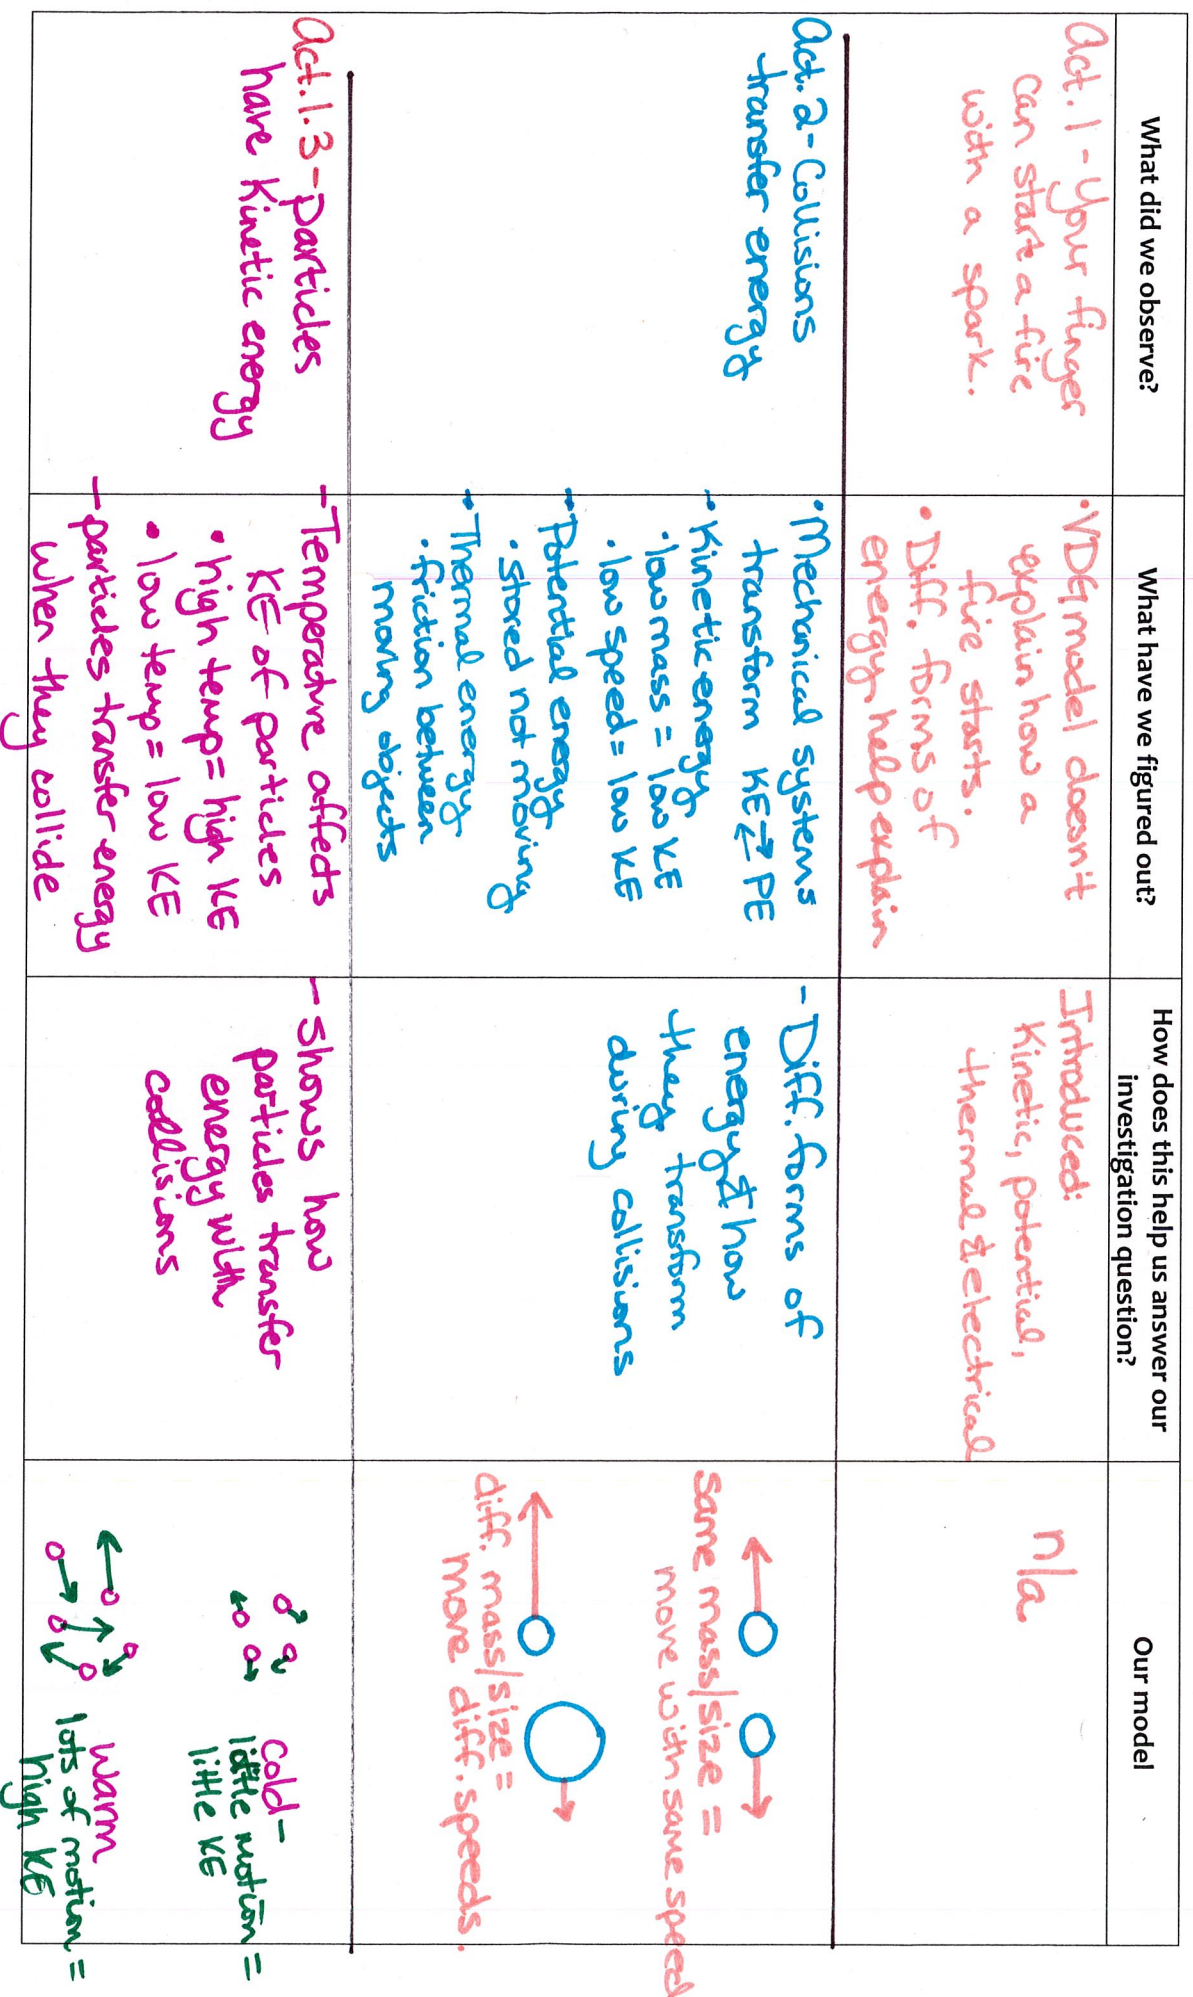 What did we observe?
What have we figured out?
How does this help us answer our
investigation question?
Our model
Act. 1 - Your finger
can start a fire
with a spark.
• VDG model doesn't
explain how a
fire starts.
• Diff. forms of
energy help explain
Introduced:
Kinetic, potential,
thermal & electrical
n/a
Act. 2 - Collisions
transfer energy
• Mechanical systems
transform KE ⇄ PE
- Kinetic energy
• low mass = low KE
• low speed = low KE
- Potential energy
• stored not moving
- Thermal energy
• friction between
moving objects
- Diff. forms of
energy & how
they transform
during collisions
same mass/size =
move with same speed
diff. mass/size =
move diff. speeds.
Act. 1.3 - particles
have Kinetic energy
- Temperature affects
KE of particles
• high temp = high KE
• low temp = low KE
- particles transfer energy
when they collide
- shows how
particles transfer
energy with
collisions
Cold -
little motion =
little KE
warm
lots of motion =
high KE